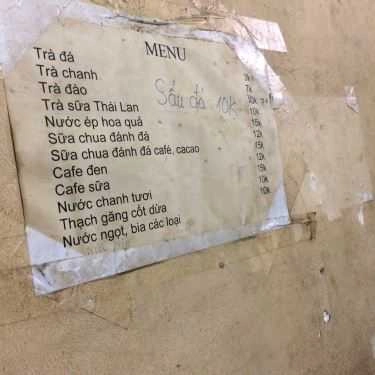 MENU
Trà đá 3k
Trà chanh 7k
Trà đào 10k
Sấu đá 10K
Trà sữa Thái Lan 10k
Nước ép hoa quả 15k
Sữa chua đánh đá 12k
Sữa chua đánh đá café, cacao 15k
Cafe đen 12k
Cafe sữa 15k
Nước chanh tươi 10k
Thạch găng cốt dừa 10k
Nước ngọt, bia các loại